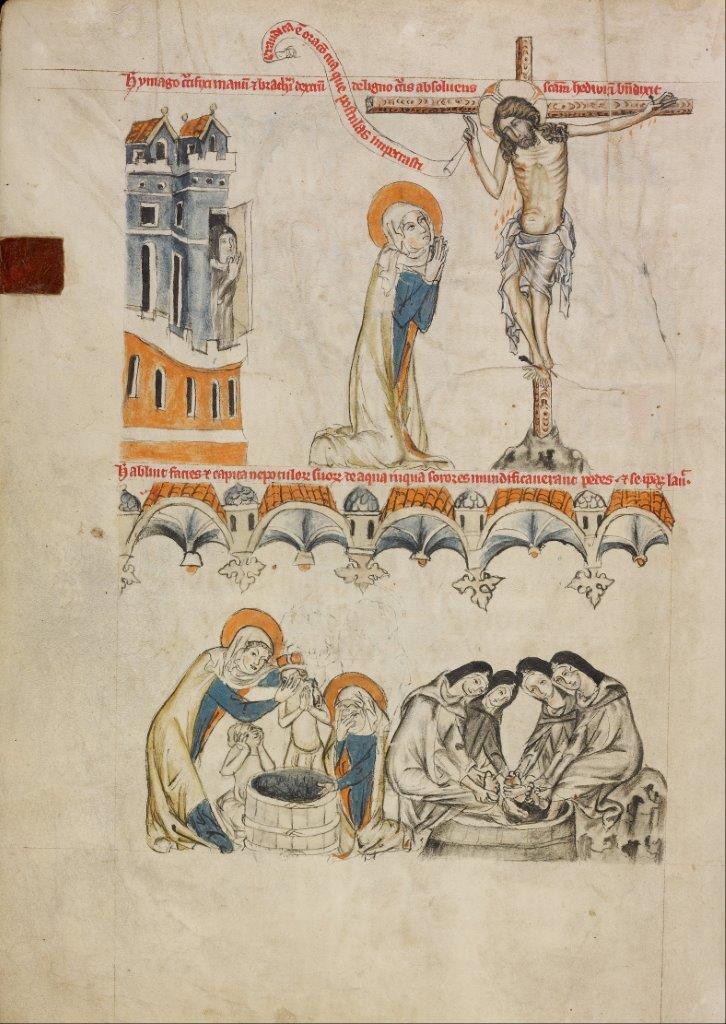 Exaudita est oratio tua et que postulas impetrasti
Hic ymago crucifixi manum et brachium dextrum de ligno crucis absolvens sanctam hedwigim benedixit
Hic abluit facies et capita nepotculorum suorum de aqua in qua sorores mundificaverant pedes et se ipsam lavit